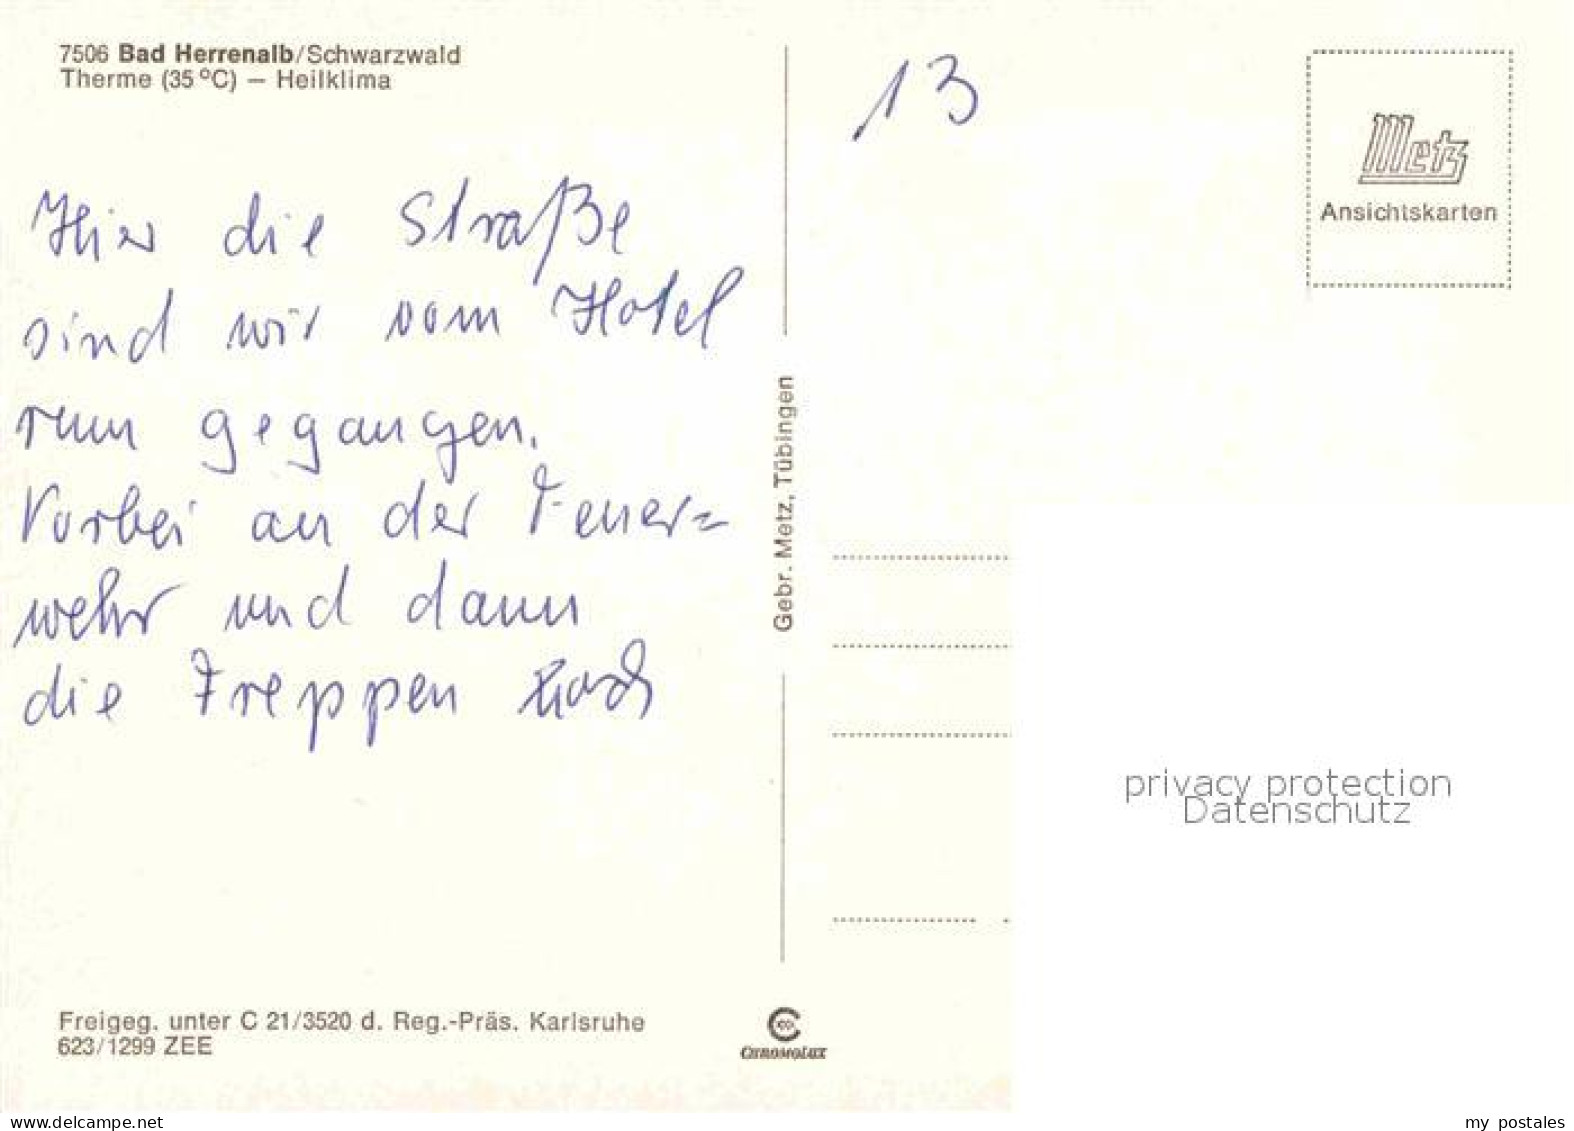 7506 Bad Herrenalb/Schwarzwald
Therme (35 °C) – Heilklima
13
Metz
Ansichtskarten
Hier die Straße
sind wir vom Hotel
rum gegangen.
Vorbei an der Feuer=
wehr und dann
die Treppen hoch
Gebr. Metz, Tübingen
privacy protection
Datenschutz
Freigeg. unter C 21/3520 d. Reg.-Präs. Karlsruhe
623/1299 ZEE
CHROMOLUX
www.delcampe.net
my_postales